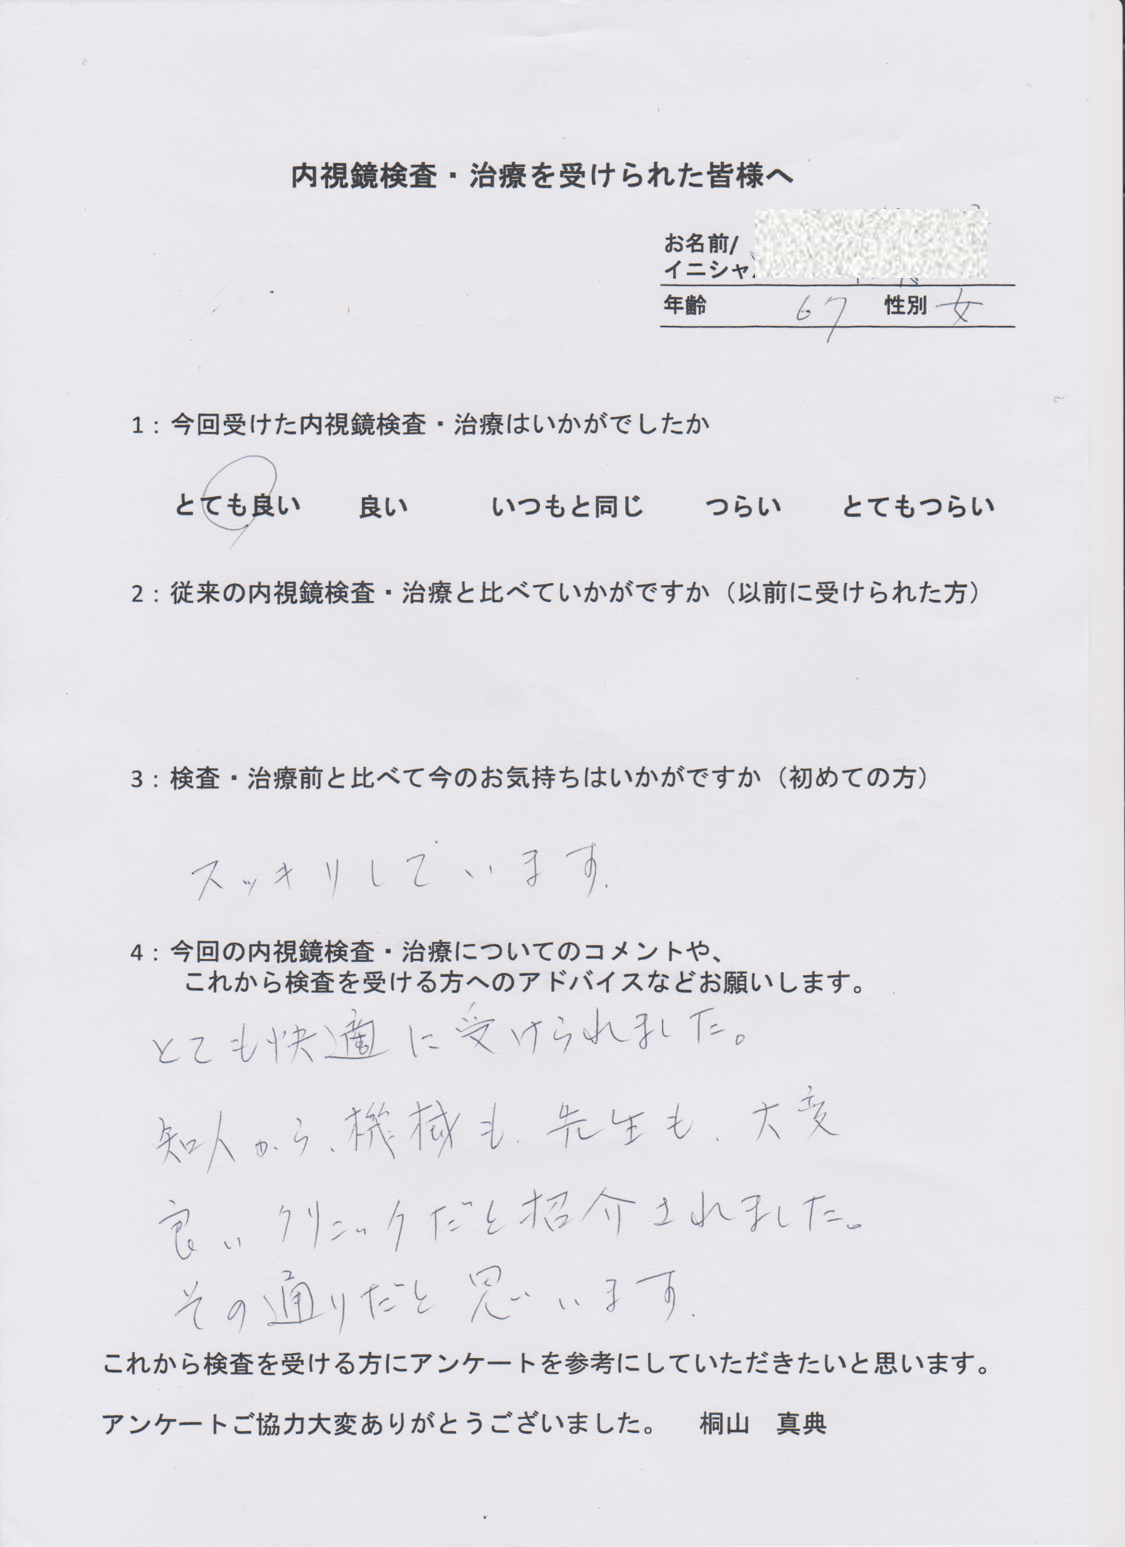 内視鏡検査・治療を受けられた皆様へ
お名前/
イニシャ
年齢 67 性別 女
1：今回受けた内視鏡検査・治療はいかがでしたか
とても良い 良い いつもと同じ つらい とてもつらい
2：従来の内視鏡検査・治療と比べていかがですか（以前に受けられた方）
3：検査・治療前と比べて今のお気持ちはいかがですか（初めての方）
スッキリしています.
4：今回の内視鏡検査・治療についてのコメントや、
これから検査を受ける方へのアドバイスなどお願いします。
とても快適に受けられました。
知人から、機械も、先生も、大変
良いクリニックだと紹介されました。
その通りだと思います.
これから検査を受ける方にアンケートを参考にしていただきたいと思います。
アンケートご協力大変ありがとうございました。 桐山 真典